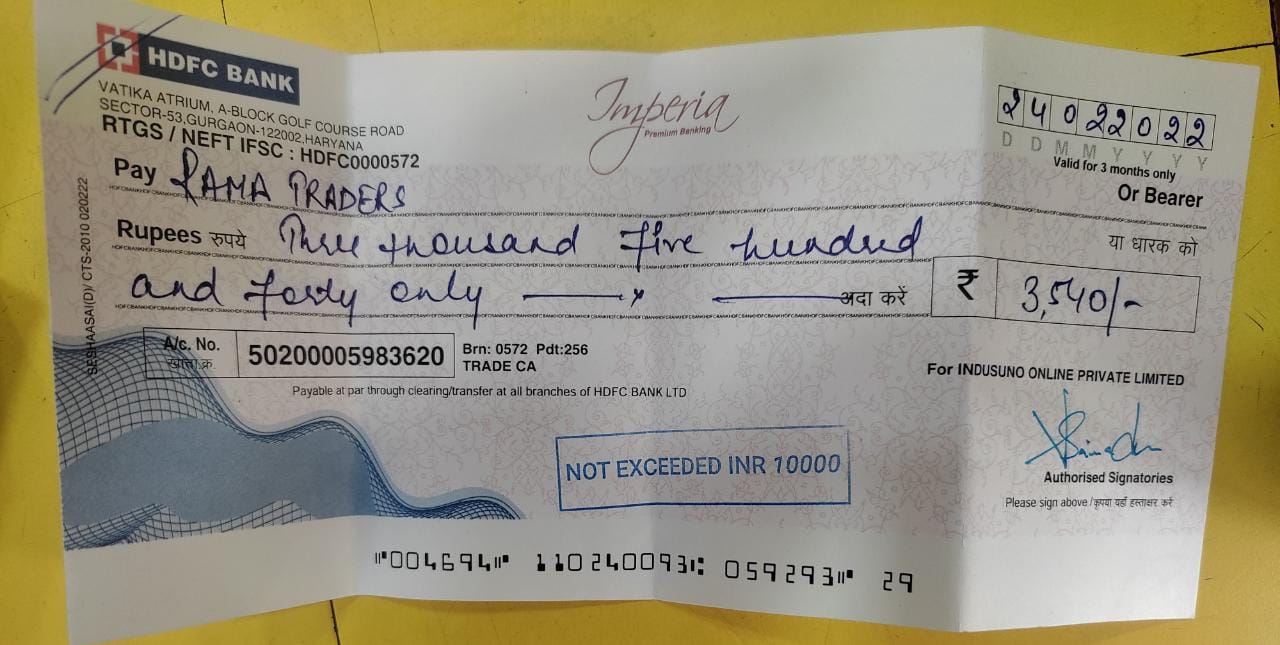 HDFC BANK
VATIKA ATRIUM, A-BLOCK GOLF COURSE ROAD
SECTOR-53,GURGAON-122002,HARYANA
RTGS / NEFT IFSC : HDFC0000572
Imperia
Premium Banking
24022022
D D M M Y Y Y Y
Valid for 3 months only
Pay RAMA TRADERS
Or Bearer
Rupees रुपये Three thousand Five hundred
या धारक को
and forty only अदा करें
₹ 3,540/-
A/c. No.
खाता क्र.
50200005983620
Brn: 0572 Pdt:256
TRADE CA
Payable at par through clearing/transfer at all branches of HDFC BANK LTD
For INDUSUNO ONLINE PRIVATE LIMITED
NOT EXCEEDED INR 10000
Authorised Signatories
Please sign above / कृपया यहाँ हस्ताक्षर करें
SESHAASAI(D)/ CTS-2010 020222
⑈004694⑈ 110240093⑆ 059293⑈ 29